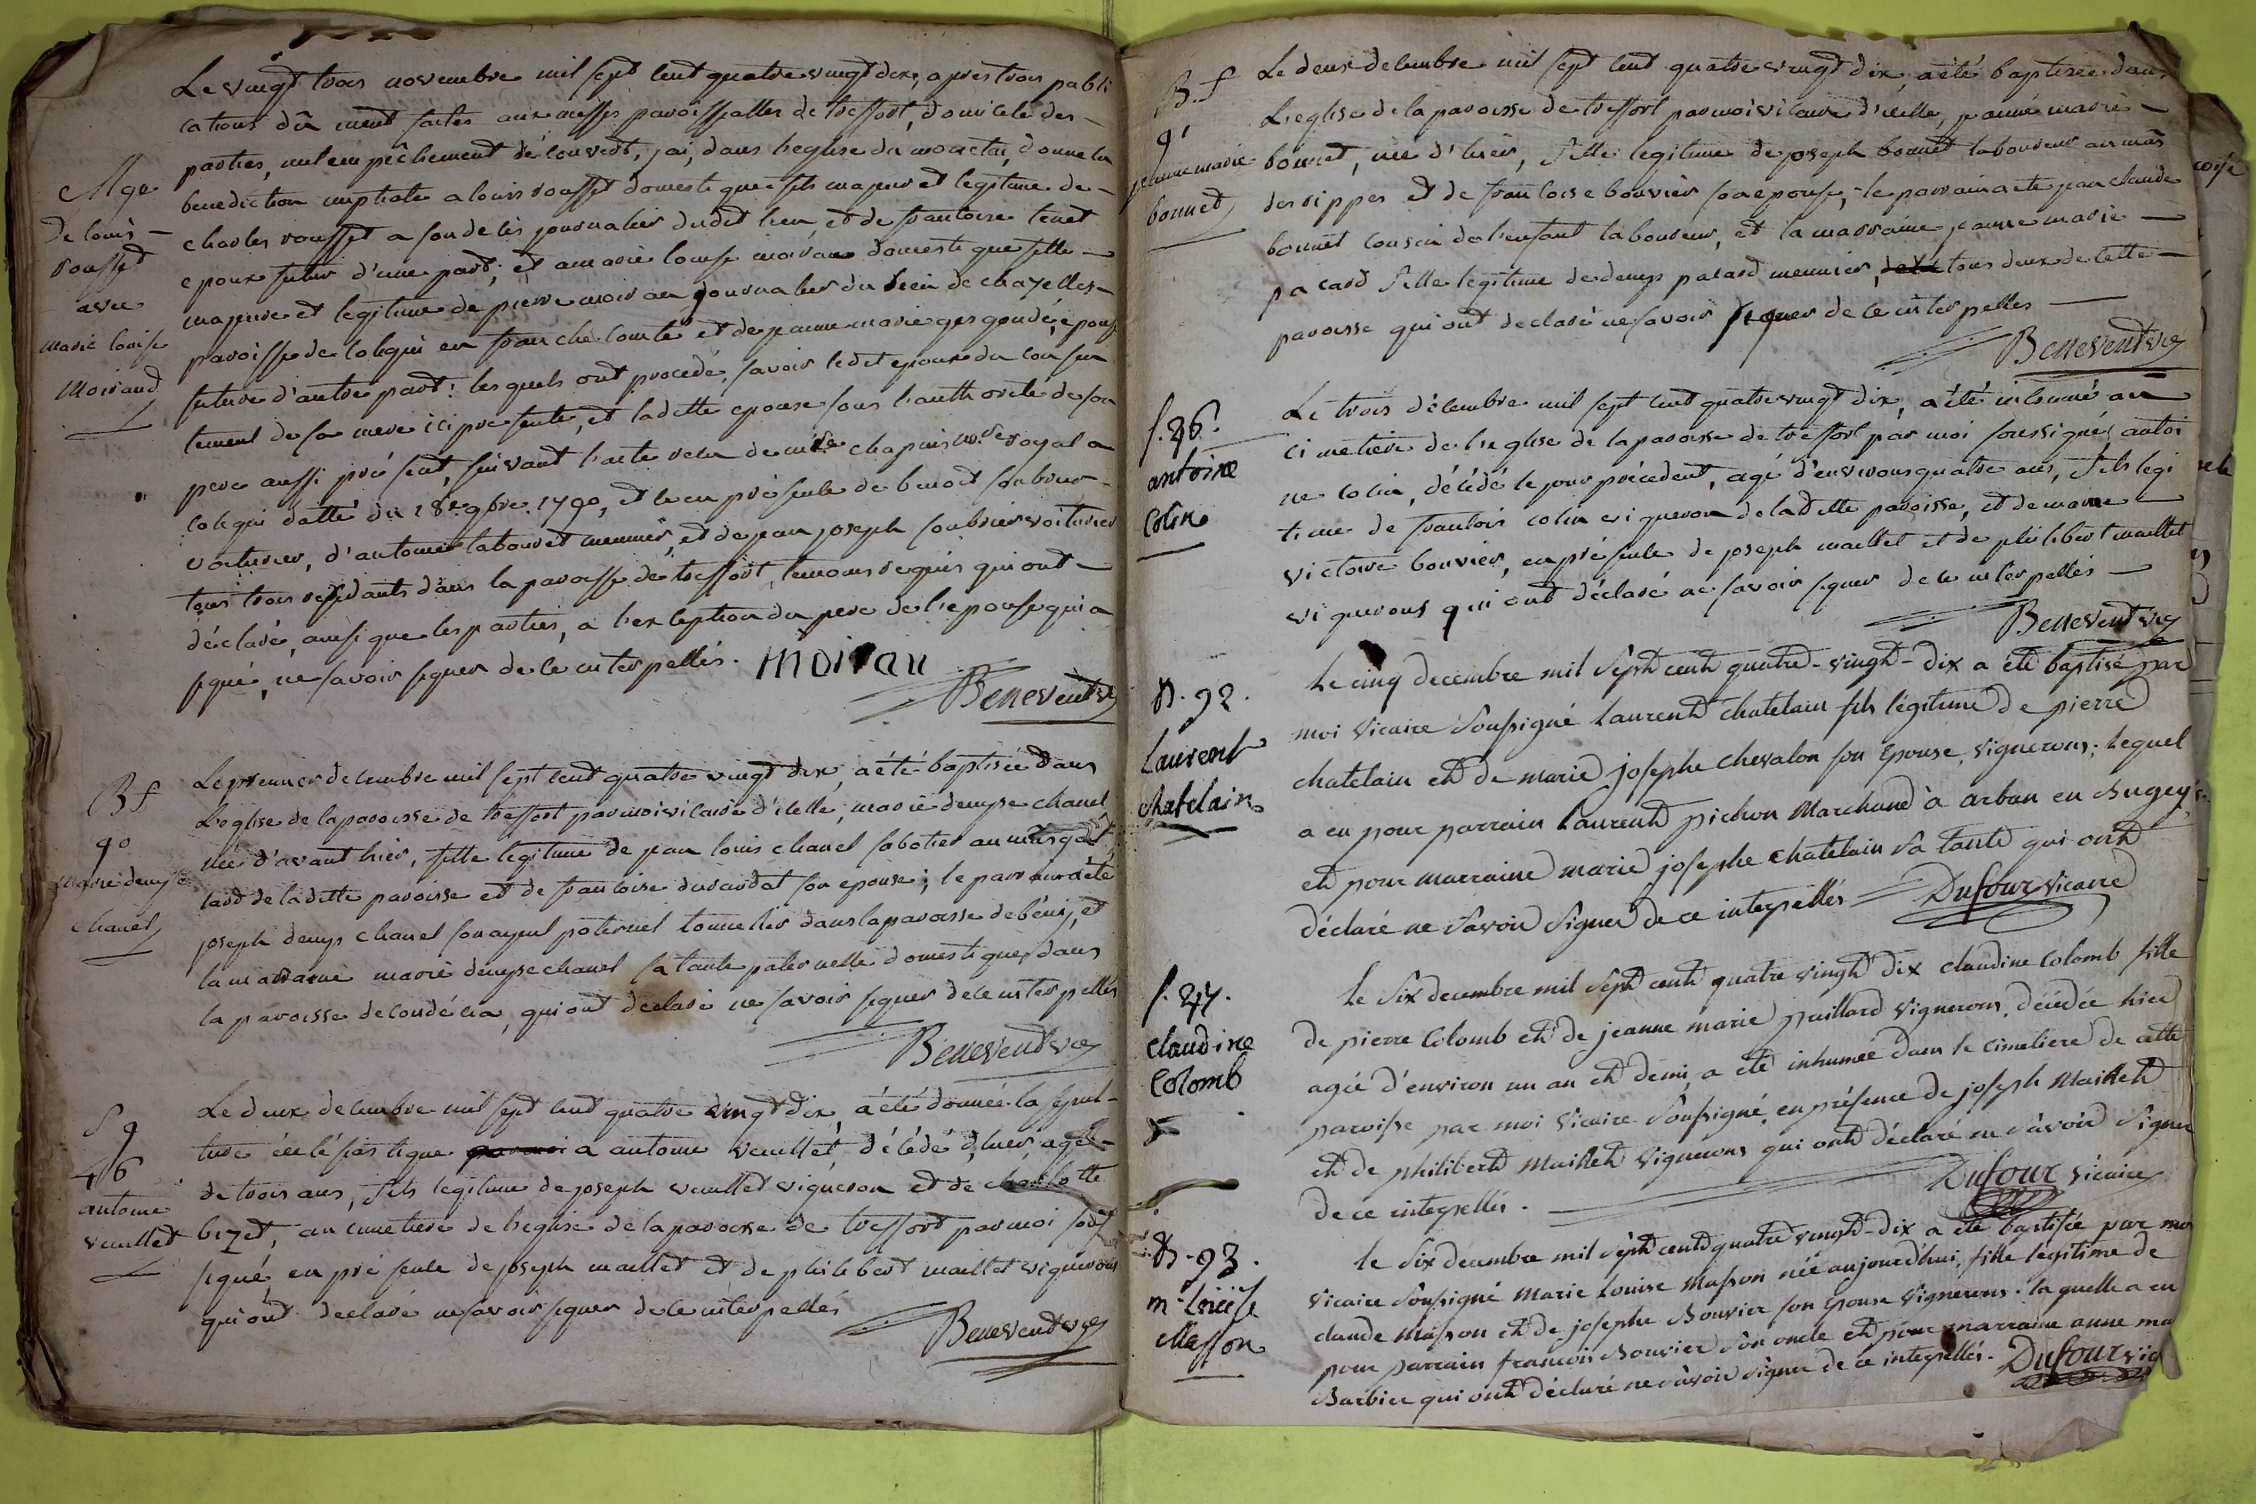 Le vingt trois novembre mil sept cent quatre vingt dix, apres trois publi
cations dû ment faites aux messes paroissialles de treffort, domicile des
parties, nul empêchement découvert, j'ai, dans l'eglise du
Mge
benediction nuptiale a louis rousset domestique fils majeur et legitime de
De louis
charles rousset journalier dudit lieu, et de francoise tenet
rousset
epoux futur d'une part; et a marie louise moirau domestique fille
avec
majeure et legitime de pierre moirau journalier du lieu de chazelles
marie louise
paroisse de coligni en franche comté et de jeanne marie epouse
Moiraud
future d'autre part: lesquels ont procedé, savoir ledit epoux du consen
tement de sa mere ici presente, et ladite epouse sous l'authorité de son
pere aussi présent, suivant l'acte recu de chapuis royal a
coligni datté du 18 9bre 1790, et ce en présence de benoit soubrier
voiturier, d'antoine labouret meunier, et de jean joseph soubrier voiturier
tous trois residants dans la paroisse de treffort, temoins requis qui ont
déclaré, ainsi que les parties, a l'exception du pere de l'epouse qui a
signé, ne savoir signer de ce interpellés. moirau
Benevent vic
Le premier decembre mil sept cent quatre vingt dix, a été baptisée dans
B f
L'eglise de la paroisse de treffort par moi vicaire d'icelle, marie denyse chanel
90
née d'avant hier, fille legitime de jean louis chanel sabotier au
marie denyse
de ladite paroisse et de francoise durandat son epouse; le parrain a été
chanel
joseph denys chanel son ayeul paternel tonnelier dans la paroisse de béni, et
la marraine marie denyse chanel sa tante paternelle domestique dans
la paroisse de condécia, qui ont declaré ne savoir signer de ce interpellés
Benevent vic
Le deux decembre mil sept cent quatre vingt dix, a été donnée la sepul-
S
ture ecclésiastique a antoine veuillet, décédé d'hier, agé
46
de trois ans, fils legitime de joseph veuillet vigneron et de charlotte
antoine
veuillet
bizet, au cimetiere de l'eglise de la paroisse de treffort par moi sous
signé, en présence de joseph maillet et de philibert maillet vignerons
qui ont declaré ne savoir signer de ce interpellés
Benevent vic
Le deux decembre mil sept cent quatre vingt dix, a été baptisée dans
B. f
L'eglise de la paroisse de treffort par moi vicaire d'icelle, jeanne marie
91
jeanne marie
bonnet, née d'hier, fille legitime de joseph bonnet laboureur au mas
bonnet
des rippes et de francoise bouvier son epouse; le parrain a été jean claude
bonnet cousin de l'enfant laboureur, et la marraine jeanne marie
pacard fille legitime de denys pacard meunier, tous deux de cette
paroisse qui ont declaré ne savoir signer de ce interpellés
Benevent vic
Le trois décembre mil sept cent quatre vingt dix, a été inhumé au
f. 46.
cimetiere de l'eglise de la paroisse de treffort par moi soussigné, antoi
antoine
ne colin, décédé le jour précedent, agé d'environ quatre ans, fils legi
Colin
time de francois colin vigneron de ladite paroisse, et de marie
victoire bouvier, en présence de joseph maillet et de philibert maillet
vignerons qui ont déclaré ne savoir signer de ce interpellés
Benevent vic
Le cinq decembre mil sept cent quatre-vingt-dix a été baptisé par
B. 92.
moi vicaire soussigné Laurent chatelain fils légitime de pierre
Laurent
chatelain et de marie josephe chevalon son epouse, vignerons; lequel
chatelain
a eu pour parrain Laurent pichon Marchand à arban en Bugey,
et pour marraine marie josephe chatelain sa tante qui ont
déclaré ne savoir signer de ce interpellés Dufour vicaire
Le six decembre mil sept cent quatre vingt dix claudine Colomb fille
f. 47.
de pierre Colomb et de jeanne marie paillard vignerons, décédée hier
claudine
agée d'environ un an et demi, a été inhumée dans le cimetiere de cette
Colomb
paroisse par moi vicaire soussigné, en présence de joseph Maillet
et de philibert Maillet vignerons qui ont déclaré ne savoir signer
de ce interpellés. Dufour vicaire
le six decembre mil sept cent quatre vingt-dix a été baptisée par moi
B. 93.
vicaire soussigné Marie Louise Masson née aujourd'hui, fille legitime de
m. Louise
claude Masson et de josephe Bouvier son epouse vignerons: laquelle a eu
Masson
pour parrain francois Bouvier son oncle et pour marraine anne ma
Barbier qui ont déclaré ne savoir signer de ce interpellés. Dufour vic